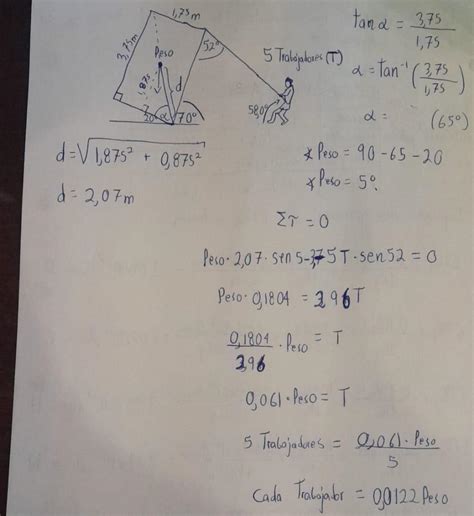 1,75m
3,75m
Peso
1,875
d
52°
5 Trabajadores (T)
580°
20
α
70°
tan α = 3,75 / 1,75
α = tan⁻¹ (3,75 / 1,75)
α = (65°)
d = √1,875² + 0,875²
d = 2,07m
∡ Peso = 90 - 65 - 20
∡ Peso = 5°
ΣT = 0
Peso · 2,07 · sen 5 - 3,75 T · sen 52 = 0
Peso · 0,1804 = 2,96 T
0,1804 / 2,96 · Peso = T
0,061 · Peso = T
5 Trabajadores = 0,061 · Peso / 5
Cada Trabajador = 0,0122 Peso